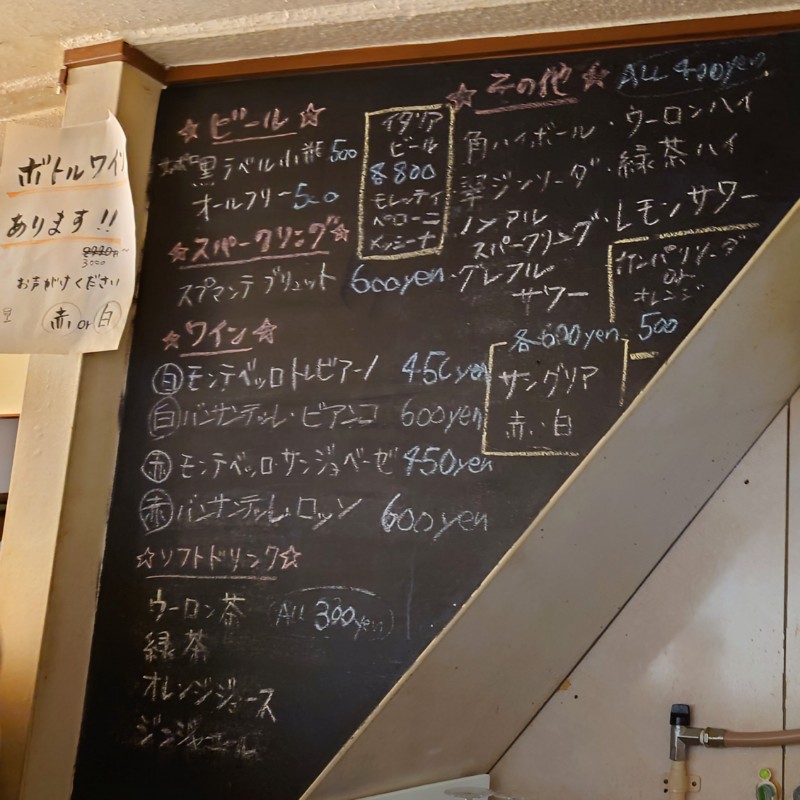 ボトルワイン
あります!!
3000
お声がけください
赤 or 白
☆ビール☆
サッポロ黒ラベル小瓶 500
オールフリー 500
イタリア
ビール
各800
モレッティ
ペローニ
メッシーナ
☆スパークリング☆
スプマンテ ブリュット 600yen
☆ワイン☆
白 モンテベッロ トレビアーノ 450yen
白 バンサンテッレ・ビアンコ 600yen
赤 モンテベッロ・サンジョベーゼ 450yen
赤 バンサンテッレ・ロッソ 600yen
☆ソフトドリンク☆
ウーロン茶 (ALL 300yen)
緑茶
オレンジジュース
ジンジャエール
☆その他☆ ALL 400yen
角ハイボール・ウーロンハイ
翠ジンソーダ・緑茶ハイ
ノンアル
スパークリング・レモンサワー
・グレフル
サワー
カンパリソーダ
or
オレンジ
500
各600yen
サングリア
赤・白